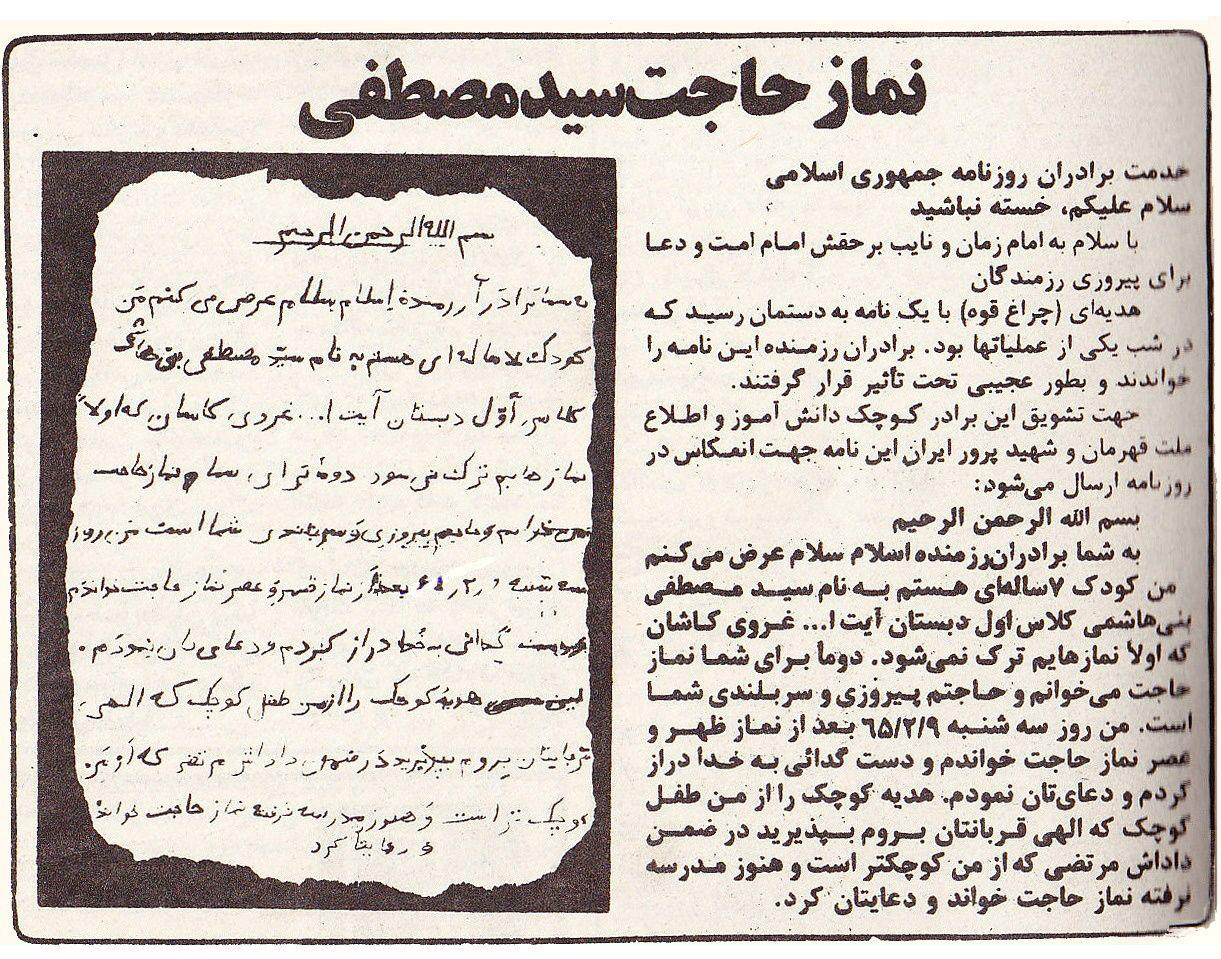 نماز حاجت سید مصطفی
خدمت برادران روزنامه جمهوری اسلامی
سلام علیکم، خسته نباشید
با سلام به امام زمان و نایب برحقش امام امت و دعا
برای پیروزی رزمندگان
هدیه‌ای (چراغ قوه) با یک نامه به دستمان رسید که
در شب یکی از عملیاتها بود. برادران رزمنده این نامه را
خواندند و بطور عجیبی تحت تأثیر قرار گرفتند.
جهت تشویق این برادر کوچک دانش آموز و اطلاع
ملت قهرمان و شهید پرور ایران این نامه جهت انعکاس در
روزنامه ارسال می‌شود:
بسم الله الرحمن الرحیم
به شما برادران رزمنده اسلام سلام عرض می‌کنم
من کودک ۷ساله‌ای هستم به نام سید مصطفی
بنی‌هاشمی کلاس اول دبستان آیت ا... غروی کاشان
که اولاً نمازهایم ترک نمی‌شود. دوماً برای شما نماز
حاجت می‌خوانم و حاجتم پیروزی و سربلندی شما
است. من روز سه شنبه ۶۵/۲/۹ بعد از نماز ظهر و
عصر نماز حاجت خواندم و دست گدائی به خدا دراز
کردم و دعای‌تان نمودم. هدیه کوچک را از من طفل
کوچک که الهی قربانتان بروم بپذیرید در ضمن
داداش مرتضی که از من کوچکتر است و هنوز مدرسه
نرفته نماز حاجت خواند و دعایتان کرد.
بسم الله الرحمن الرحیم
به شما برادران رزمندهٔ اسلام سلام عرض می کنم من
کودک ۷ ساله ای هستم به نام سید مصطفی بنی هاشمی
کلاس اول دبستان آیت ا... غروی کاشان که اولاً
نمازهایم ترک نمی شود دوماً برای شما نماز حاجت
می خوانم و حاجتم پیروزی و سربلندی شما است من روز
سه شنبه بعد از نماز ظهر و عصر نماز حاجت خواندم
دست گدائی به خدا دراز کردم و دعای تان نمودم.
هدیه کوچک را از من طفل کوچک که الهی
قربانتان بروم بپذیرید در ضمن داداش مرتضی که از من
کوچک تر است و هنوز مدرسه نرفته نماز حاجت خواند
و دعایتان کرد